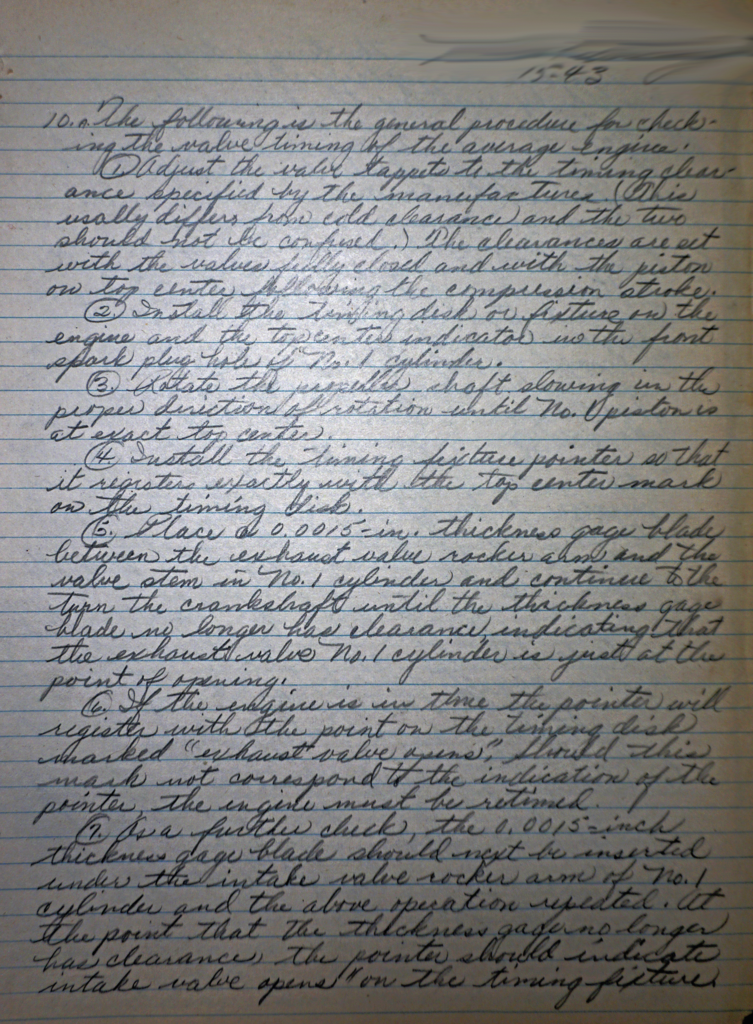 15-43
10. a. The following is the general procedure for check-
ing the valve timing of the average engine.
① Adjust the valve tappets to the timing clear-
ance specified by the manufactures. (This
usally differs from cold clearance) and the two
should not be confused.) The clearances are set
with the valves fully closed and with the piston
on top center following the compression stroke.
② Install the timing disk or fixture on the
engine and the top center indicator in the front
spark plug hole of No. 1 cylinder.
③ Rotate the propeller shaft slowing in the
proper direction of rotation until No. 1 piston is
at exact top center.
④ Install the timing fixture pointer so that
it registers exactly with the top center mark
on the timing disk.
⑤ Place a 0.0015-in. thickness gage blade
between the exhaust valve rocker arm and the
valve stem in No. 1 cylinder and continue to the
turn the crankshaft until the thickness gage
blade no longer has clearance, indicating that
the exhaust valve No. 1 cylinder is just at the
point of opening.
⑥ If the engine is in time the pointer will
register with the point on the timing disk
marked "exhaust valve opens". Should this
mark not correspond to the indication of the
pointer, the engine must be retimed.
⑦ As a further check, the 0.0015-inch
thickness gage blade should next be inserted
under the intake valve rocker arm of No. 1
cylinder and the above operation repeated. At
the point that the thickness gage no longer
has clearance, the pointer should indicate
intake valve opens" on the timing fixture.